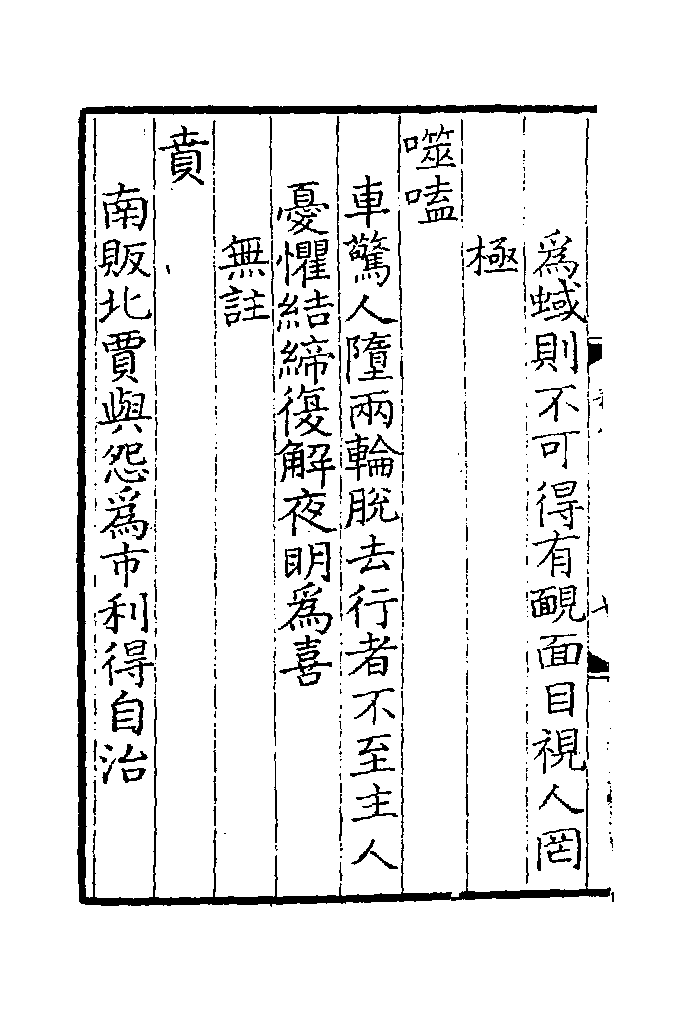 為蜮則不可得有靦面目視人罔
極
噬嗑
車驚人墮兩輪脫去行者不至主人
憂懼結締復解夜明為喜
無註
賁
南販北賈與怨為市利得自治